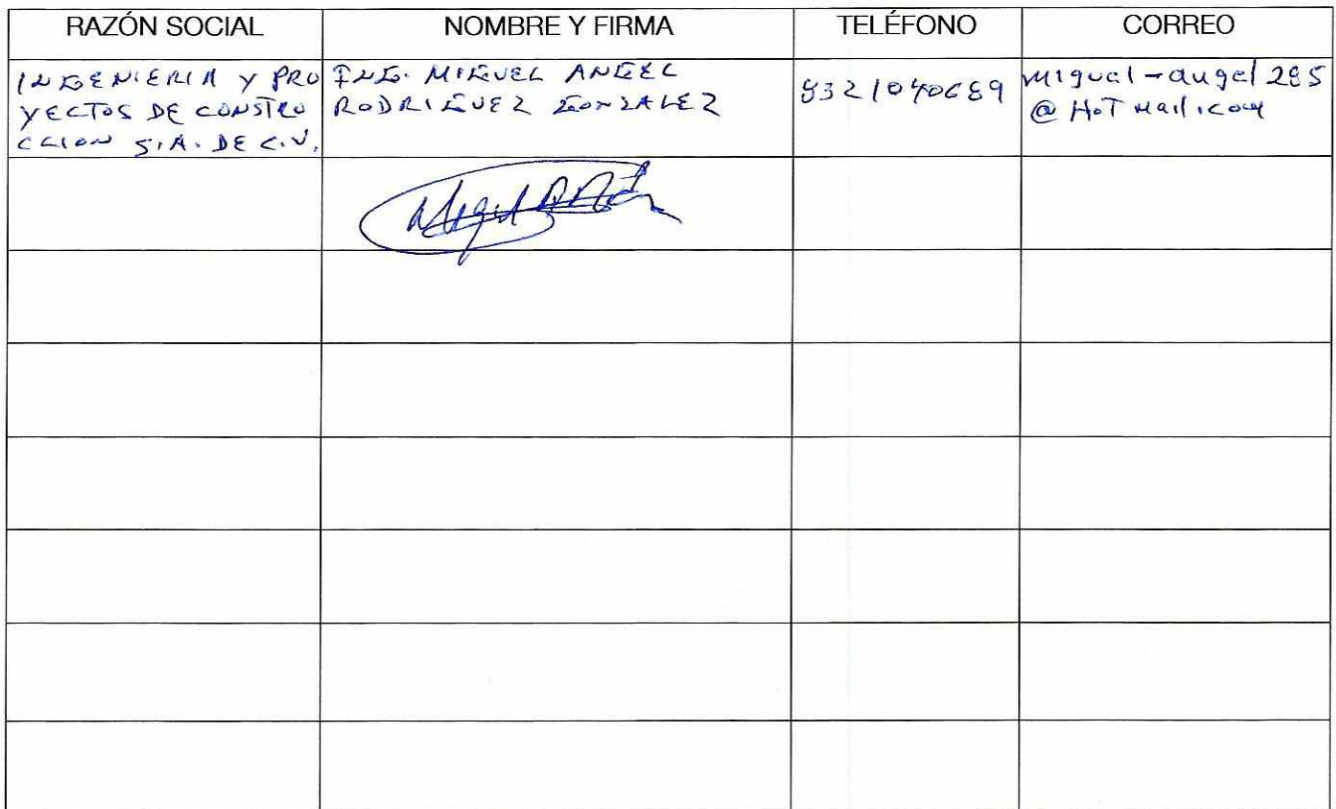 RAZÓN SOCIAL NOMBRE Y FIRMA TELÉFONO CORREO
INGENIERIA Y PRO
YECTOS DE CONSTRU
CCION S.A. DE C.V.
ING. MIGUEL ANGEL
RODRIGUEZ GONZALEZ
8321040689
miguel-angel285
@HOTMail.com